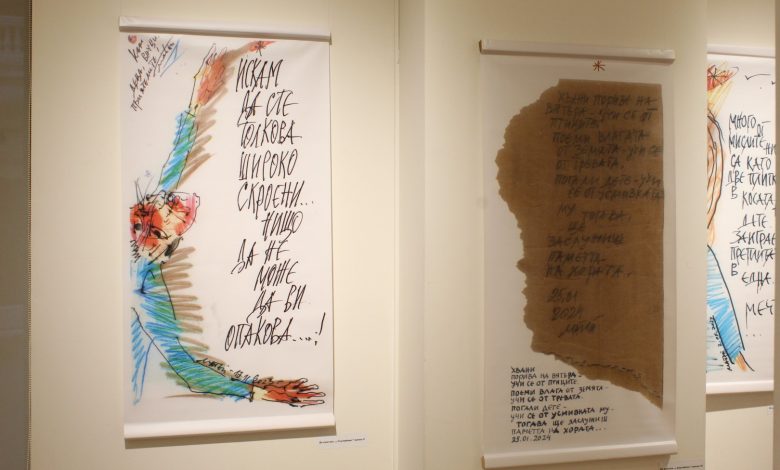 ИСКАМ
ДА СТЕ
ТОЛКОВА
ШИРОКО
СКРОЕНИ...
НИЩО
ДА НЕ
МОЖЕ
ДА ВИ
ОПАКОВА....!
ХВАНИ ПОРИВА НА
ВЯТЪРА - УЧИ СЕ ОТ
ПТИЦИТЕ.
ПОЕМИ ВЛАГАТА
ОТ ЗЕМЯТА - УЧИ СЕ
ОТ ТРЕВАТА.
ПОГАЛИ ДЕТЕ - УЧИ
СЕ ОТ УСМИВКАТА
МУ
ТОГАВА,
ЩЕ
ЗАСЛУЖИШ
ПАМЕТТА
НА ХОРАТА.
25.01
2024
ХВАНИ
ПОРИВА НА ВЯТЪРА -
УЧИ СЕ ОТ ПТИЦИТЕ
ПОЕМИ ВЛАГА ОТ ЗЕМЯТА -
УЧИ СЕ ОТ ТРЕВАТА.
ПОГАЛИ ДЕТЕ -
УЧИ СЕ ОТ УСМИВКАТА МУ.
ТОГАВА ЩЕ ЗАСЛУЖИШ
ПАМЕТТА НА ХОРАТА...
25.01.2024
МНОГО
ОТ
МИСЛИТЕ НИ
СА КАТО
ДВЕ ПЛИТКИ
В
КОСАТА -
ДЕТЕ
ЗАИГРАЕ
ПРЕПЛИТА
В
ЕДНА.
МЕЧ